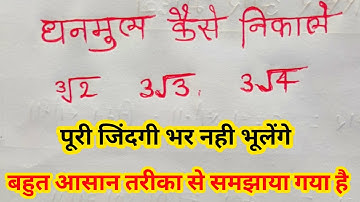 घनमुल कैसे निकाले
∛2 3√3, 3√4
पूरी जिंदगी भर नही भूलेंगे
बहुत आसान तरीका से समझाया गया है